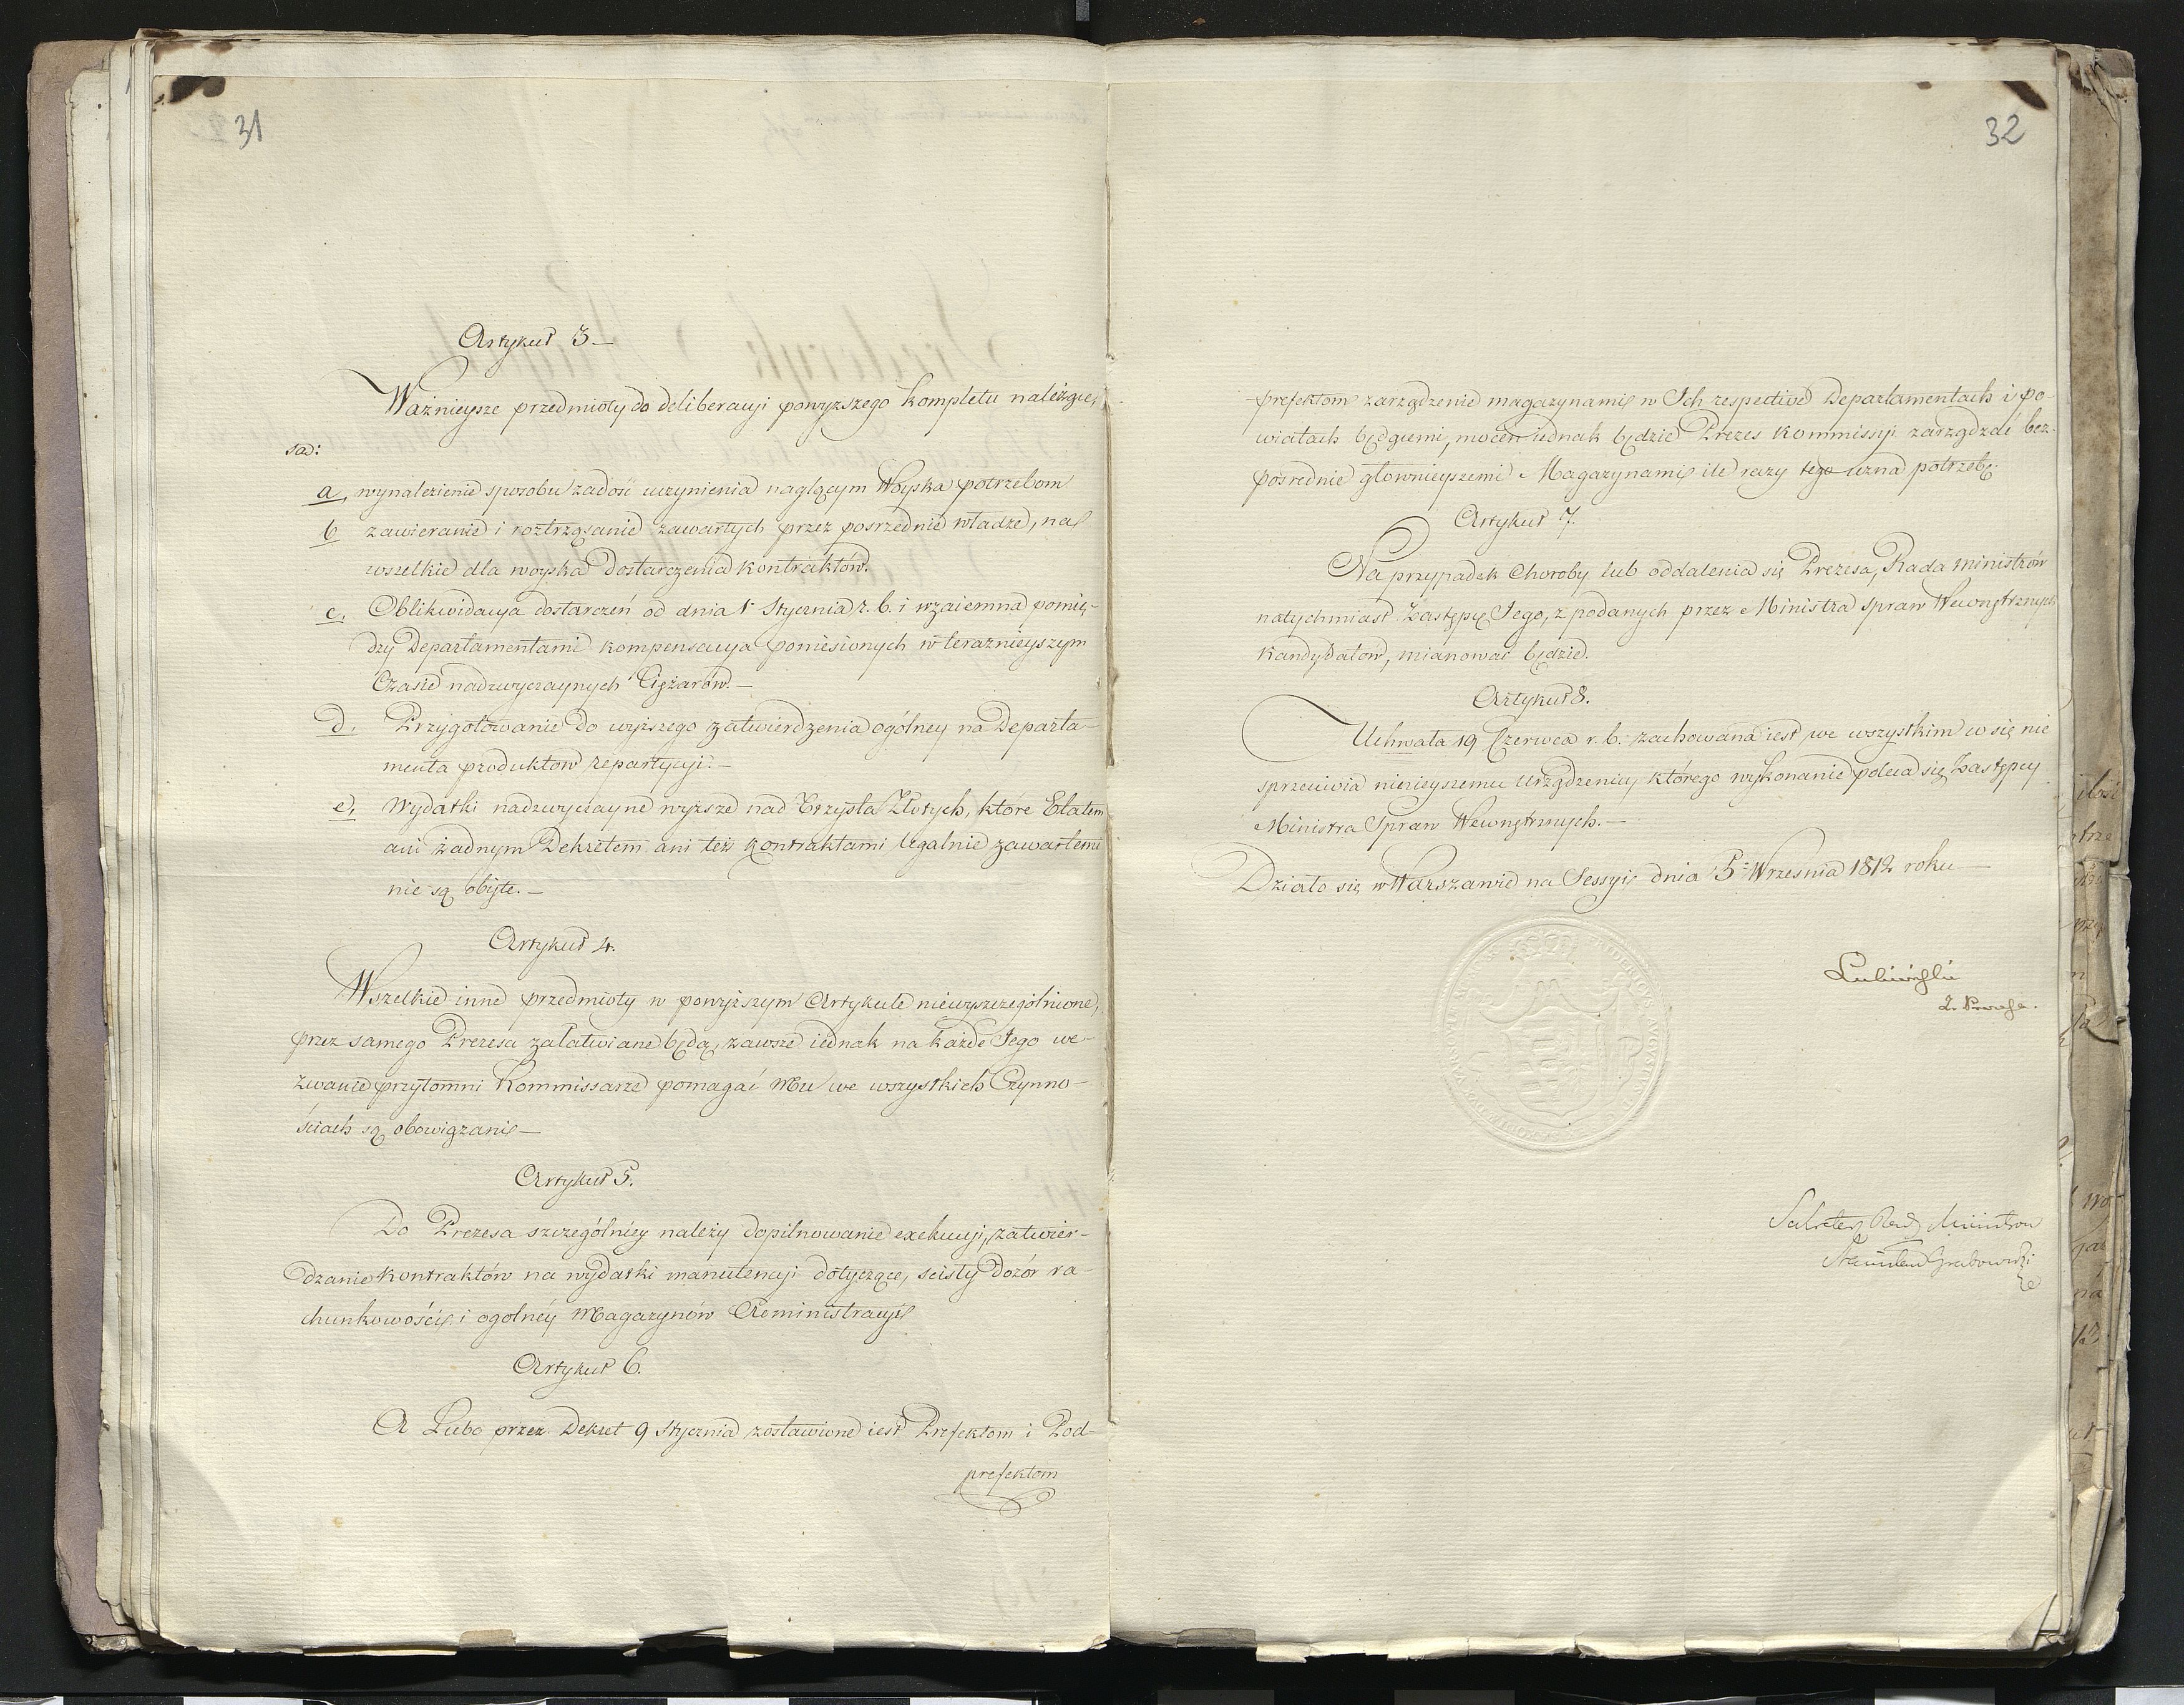 31
Artykuł 3 —
Ważnieysze przedmioty do deliberacyi powyższego kompletu należące
są:
a, wynalezienie sposobu zadość uczynienia naglącym Woyska potrzebom
b zawieranie i roztrząsanie zawartych przez posrzednie władze, na
wszelkie dla woyska Dostarczenia kontraktów.
c. Oblikwidacya dostarczeń od dnia 1 Stycznia r. b. i wzaiemna pomię-
dzy Departamentami kompensacya poniesionych w teraźnieyszym
Czasie nadzwyczaynych Ciężarów. —
d. Przygotowanie do wyższego zatwierdzenia ogólney na Departa-
menta produktów repartycyi. —
e, Wydatki nadzwyczayne wyższe nad Trzysta Złotych, które Etatem
ani żadnym Dekretem ani też kontraktami legalnie zawartemi
nie są objęte. —
Artykuł 4.
Wszelkie inne przedmioty w powyższym Artykule niewyszczególnione,
przez samego Prezesa załatwiane będą, zawsze iednak na każde Jego we-
zwanie przytomni Kommissarze pomagać Mu we wszystkich Czynno-
ściach są obowiązani —
Artykuł 5.
Do Prezesa szczególniey należy dopilnowanie exekucyi, zatwier-
dzanie kontraktów na wydatki manutencyi dotyczące, scisły Dozór ra-
chunkowości i ogolnéy Magazynów Administracyi
Artykuł 6.
A Lubo przez Dekret 9 Stycznia zostawione iest Prefektom i Pod-
prefektom
32
-prefektom zarządzenie magazynami w Ich respective Departamentach i po-
wiatach będącemi, mocen iednak będzie Prezes Kommissyi zarządzać bez-
pośrednie głownieyszemi Magazynami ile razy tego uzna potrzebę.
Artykuł 7.
Na przypadek Choroby lub oddalenia się Prezesa, Rada ministrów
natychmiast Zastępcę Jego, z podanych przez Ministra spraw Wewnętrznych
Kandydatow, mianować będzie.
Artykuł 8.
Uchwała 19 Czerwca r. b. zachowana iest we wszystkim w się nie
sprzeciwia ninieyszemu Urządzeniu, którego wykonanie poleca się Zastępcy
Ministra Spraw Wewnętrznych. —
Działo się w Warszawie na Sessyi dnia 5 Wrzesnia 1812 roku —
Lubieński
Z. Prezesa.
Sekretarz Rady Ministrow
Stanisław Grabowski